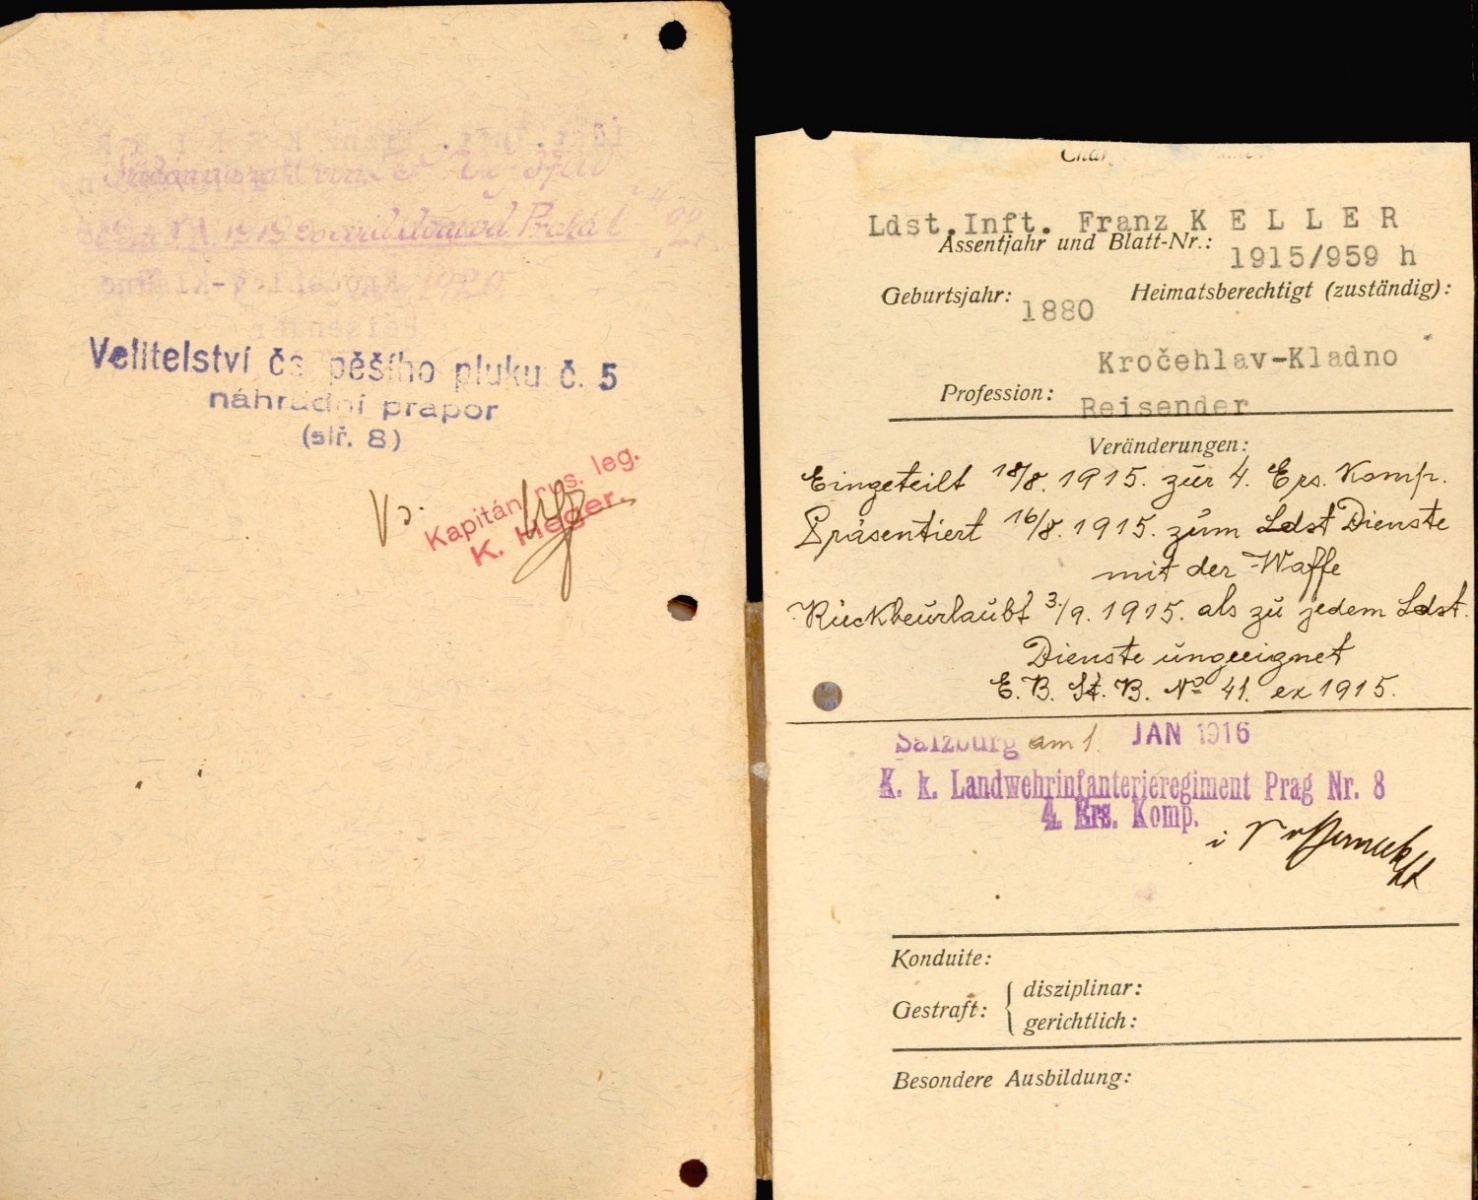 Velitelství čs. pěšího pluku č. 5
náhradní prapor
(stř. 8)
Kapitán rus. leg.
K. Heger.
Ldst.Inft. Franz K E L L E R
Assentjahr und Blatt-Nr.: 1915/959 h
Geburtsjahr: 1880 Heimatsberechtigt (zuständig):
Kročehlav-Kladno
Profession: Reisender
Veränderungen:
Eingeteilt 18/8. 1915. zur 4. Ers. Komp.
Präsentiert 16/8. 1915. zum Ldst Dienste
mit der Waffe
Rückbeurlaubt 3./9. 1915. als zu jedem Ldst.
Dienste ungeeignet
E. B. St. B. No 41. ex 1915.
Salzburg am 1. JAN 1916
K. k. Landwehrinfanterieregiment Prag Nr. 8
4. Ers. Komp.
Konduite:
Gestraft: { disziplinar:
gerichtlich:
Besondere Ausbildung: